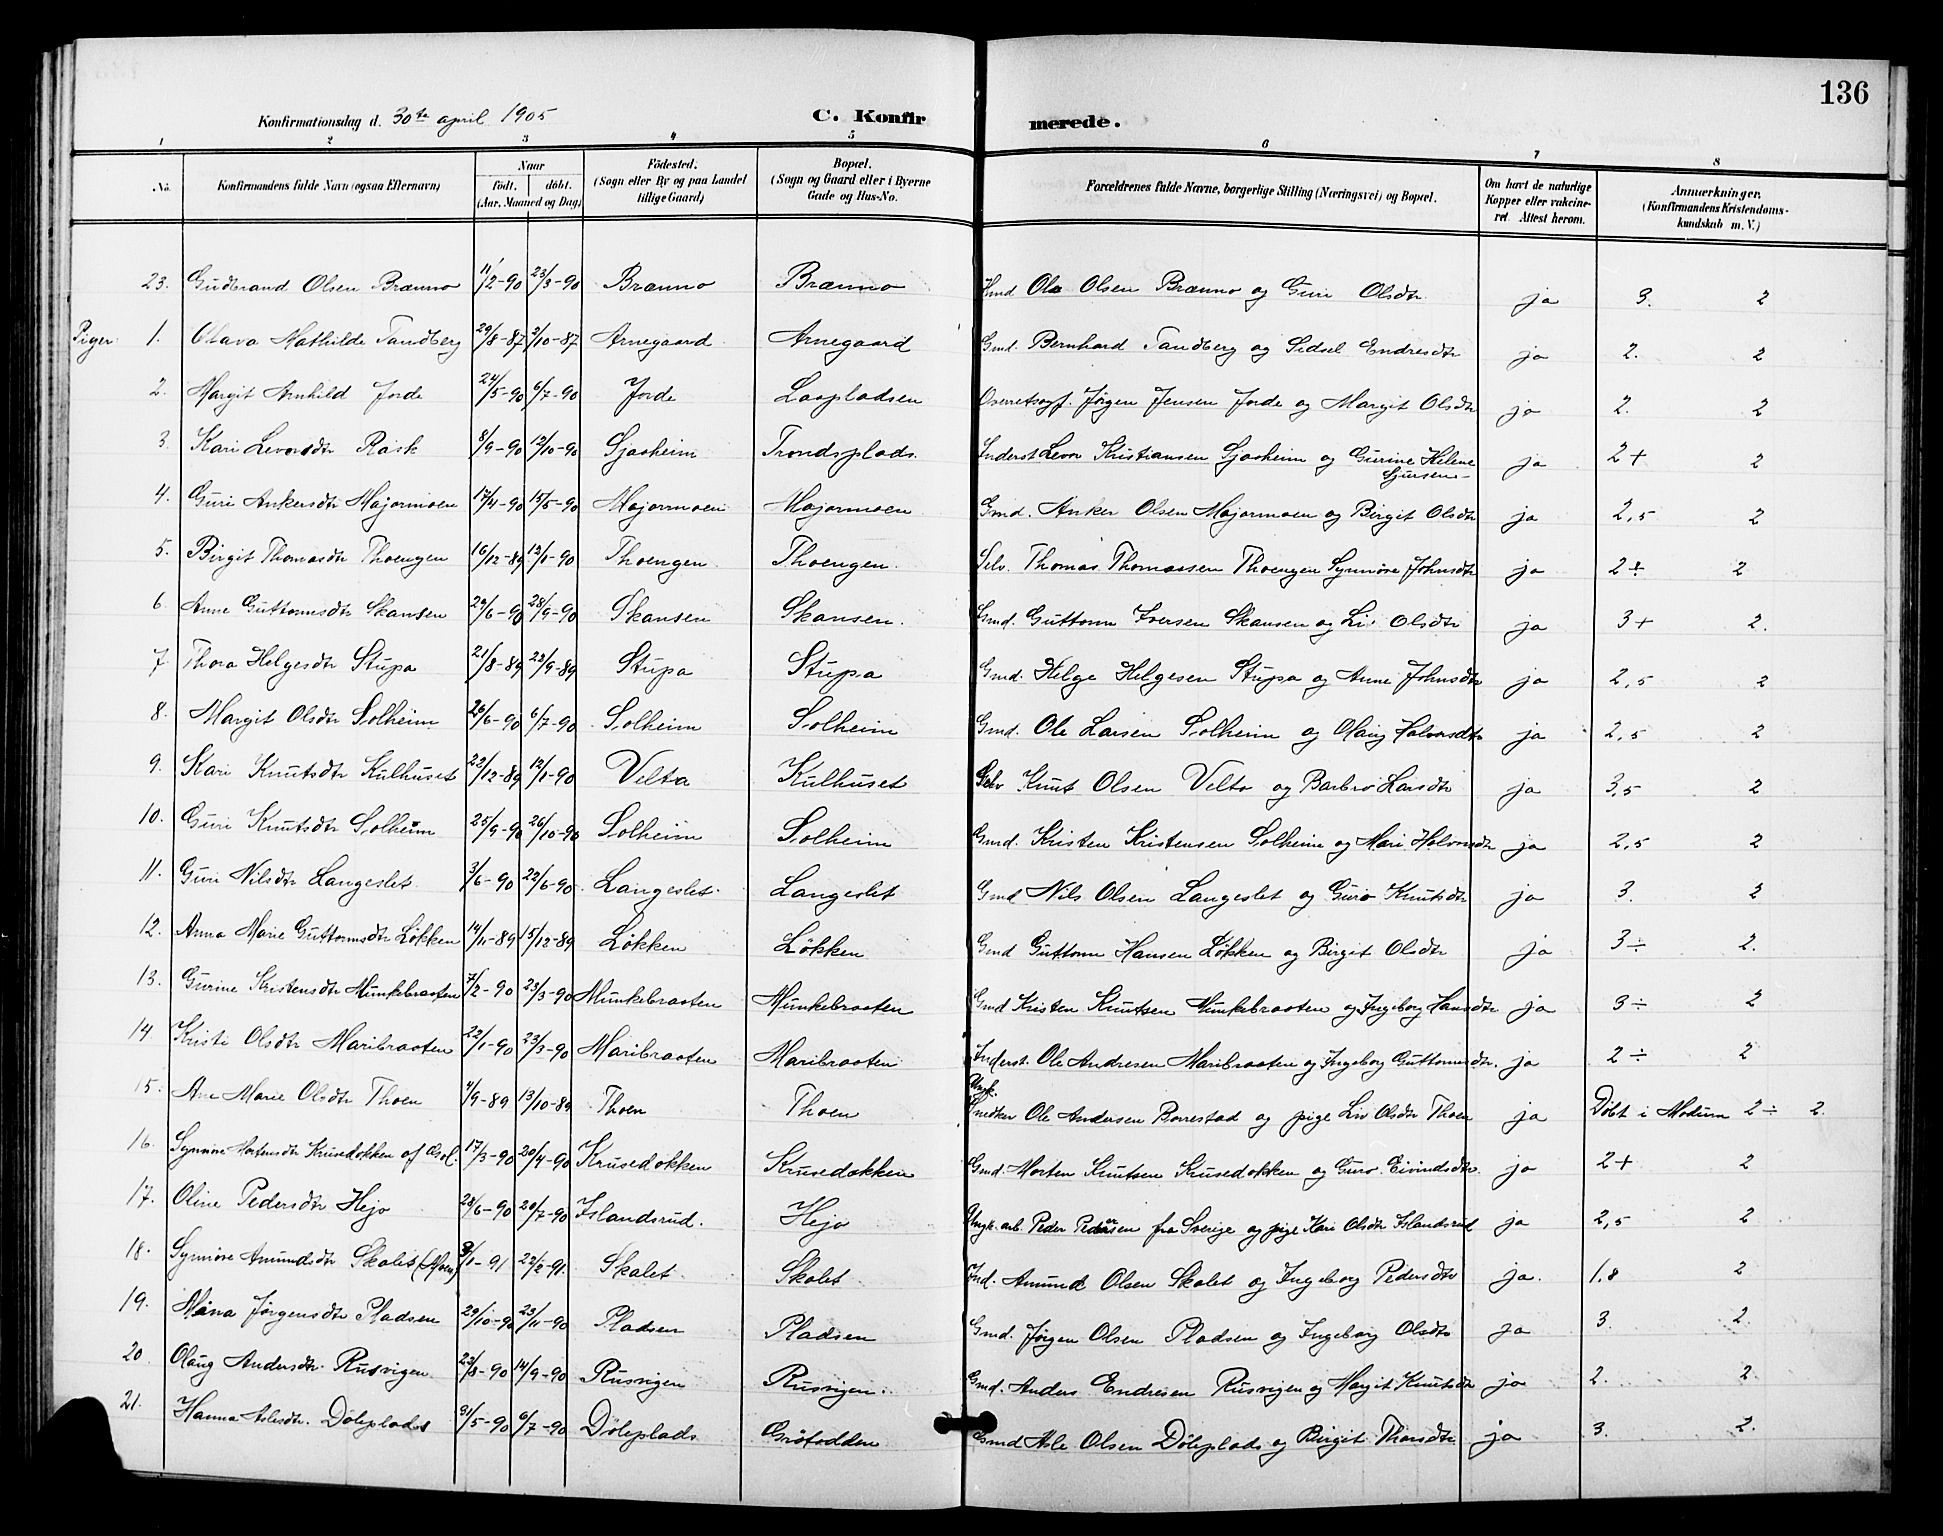 136
Konfirmationsdag d. 30te april 1905 C. Konfirmerede.
1 2 3 4 5 6 7 8
No. Konfirmandens fulde Navn (ogsaa Efternavn) Naar födt. döbt. (Aar, Maaned og Dag) Födested. (Sogn eller By og paa Landet tillige Gaard) Bopæl. (Sogn og Gaard eller i Byerne Gade og Hus-No. Forældrenes fulde Navne, borgerlige Stilling (Næringsvei) og Bopæl. Om havt de naturlige Kopper eller vakcineret. Attest herom. Anmærkninger. (Konfirmandens Kristendomskundskab m. V.)
23. Gudbrand Olsen Brænno 11/2-90 23/3-90 Brænno Brænno Gmd Ole Olsen Brænno og Guri Olsdtr ja 3. 2
Piger: 1. Olava Mathilde Tandberg 29/8-87 2/10-87 Arnegaard Arnegaard Gmd. Bernhard Tandberg og Sidsel Endresdtr ja 2. 2
2. Margit Arnhild Jorde 24/5-90 6/7-90 Jorde Laapladsen Jørgen Jensen Jorde og Margit Olsdtr ja 2. 2
3. Kari Levorsdtr Rask 8/9-90 12/10-90 Sjaaheim Trondsplads Inderst Levor Kristiansen Sjaaheim og Gurine Helene Sjursen ja 2+ 2
4. Guri Ankersdtr Majormoen 17/4-90 15/5-90 Majormoen Majormoen Gmd. Anker Olsen Majormoen og Birgit Olsdtr ja 2,5 2
5. Birgit Thomasdtr Thoengen 16/12-89 12/1-90 Thoengen. Thoengen. Selv. Thomas Thomassen Thoengen Synnøve Johnsdtr ja 2÷ 2
6. Anne Guttormsdtr Skansen 29/6-90 28/9-90 Skansen Skansen. Gmd. Guttorm Iversen Skansen og Liv Olsdtr ja 3+ 2.
7. Thora Helgesdtr Stupa 21/8-89 23/9-89 Stupa Stupa Gmd. Helge Helgesen Stupa og Anne Johnsdtr ja 2,5 2
8. Margit Olsdtr Solheim 26/6-90 6/7-90 Solheim Solheim Gmd. Ole Larsen Solheim og Olaug Halvorsdtr ja 2,5 2
9. Kari Knutsdtr Kulhuset 22/12-89 12/1-90 Velta Kulhuset Selv Knut Olsen Velta og Barbro Larsdtr ja 3,5 2
10. Guri Knutsdtr Solheim 25/9-90 26/10-90 Solheim Solheim Gmd. Kristen Kristensen Solheim og Mari Halvorsdtr ja 2,5 2
11. Guri Nilsdtr Langeslet 3/6-90 22/6-90 Langeslet. Langeslet Gmd Nils Olsen Langeslet og Guro Knutsdtr ja 3. 2
12. Anna Marie Guttormsdtr Løkken 14/11-89 15/12-89 Løkken Løkken Gmd Guttorm Hansen Løkken og Birgit Olsdtr ja 3÷ 2.
13. Gurine Kristensdtr Munkebraaten 7/2-90 23/3-90 Munkebraaten Munkebraaten Gmd Kristen Knutsen Munkebraaten og Ingeborg Hansdtr ja 3÷ 2
14 Kristi Olsdtr Maribraaten 22/1-90 23/3-90 Maribraaten Maribraaten Inderst. Ole Andresen Maribraaten og Ingeborg Guttormsdtr. ja 2÷ 2
15. Ane Marie Olsdtr Thoen 4/9-89 13/10-89 Thoen Thoen Ungk. Snedker Ole Andersen Borrestad og pige Liv Olsdtr Thoen ja Døbt i Modum 2÷ 2.
16. Synnøve Mortensdtr Krusedokken 17/3-90 20/4-90 Krusedokken Krusedokken Gmd. Morten Knutsen Krusedokken og Guro Eivindsdtr ja 2+ 2
17. Oline Pedersdtr Hejo 28/6-90 20/7-90 Islandsrud. Hejo Ungk. arb. Peder Pedersen fra Sverige og pige Kari Olsdtr Islandsrud ja 2,5 2
18. Synnøve Amundsdtr Skalet (Moen) 3/1-91 22/2-91. Skalet. Skalet Ind. Amund Olsen Skalet og Ingeborg Pedersdtr ja. 1,8 2
19. Mina Jørgensdtr Pladsen 29/10-90 23/11-90 Pladsen Pladsen Gmd. Jørgen Olsen Pladsen og Ingeborg Olsdtr ja 3. 2.
20. Olaug Andersdtr. Rusvigen 23/8-90 14/9-90 Rusvigen Rusvigen. Gmd. Anders Endresen Rusvigen og Margit Knutsdtr ja 2. 2
21. Hanna Aslesdtr. Döleplads 31/5-90 6/7-90 Döleplads Grötodden Gmd Asle Olsen Döleplads og Birgit Thorsdtr ja 3. 2.